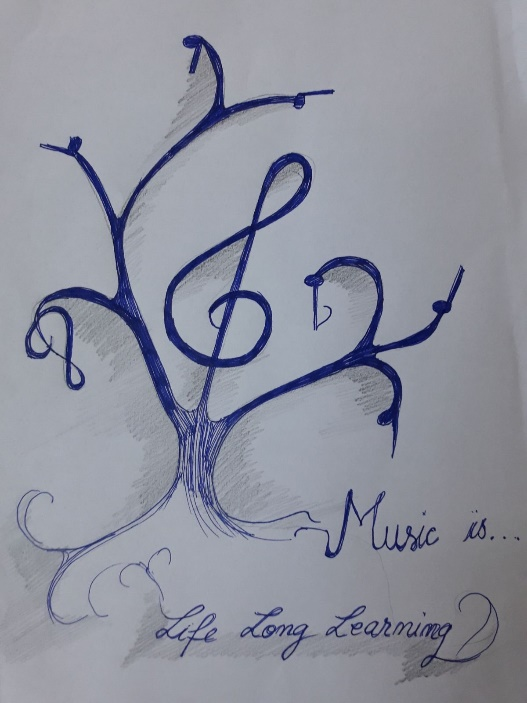 Music is...
Life Long Learning